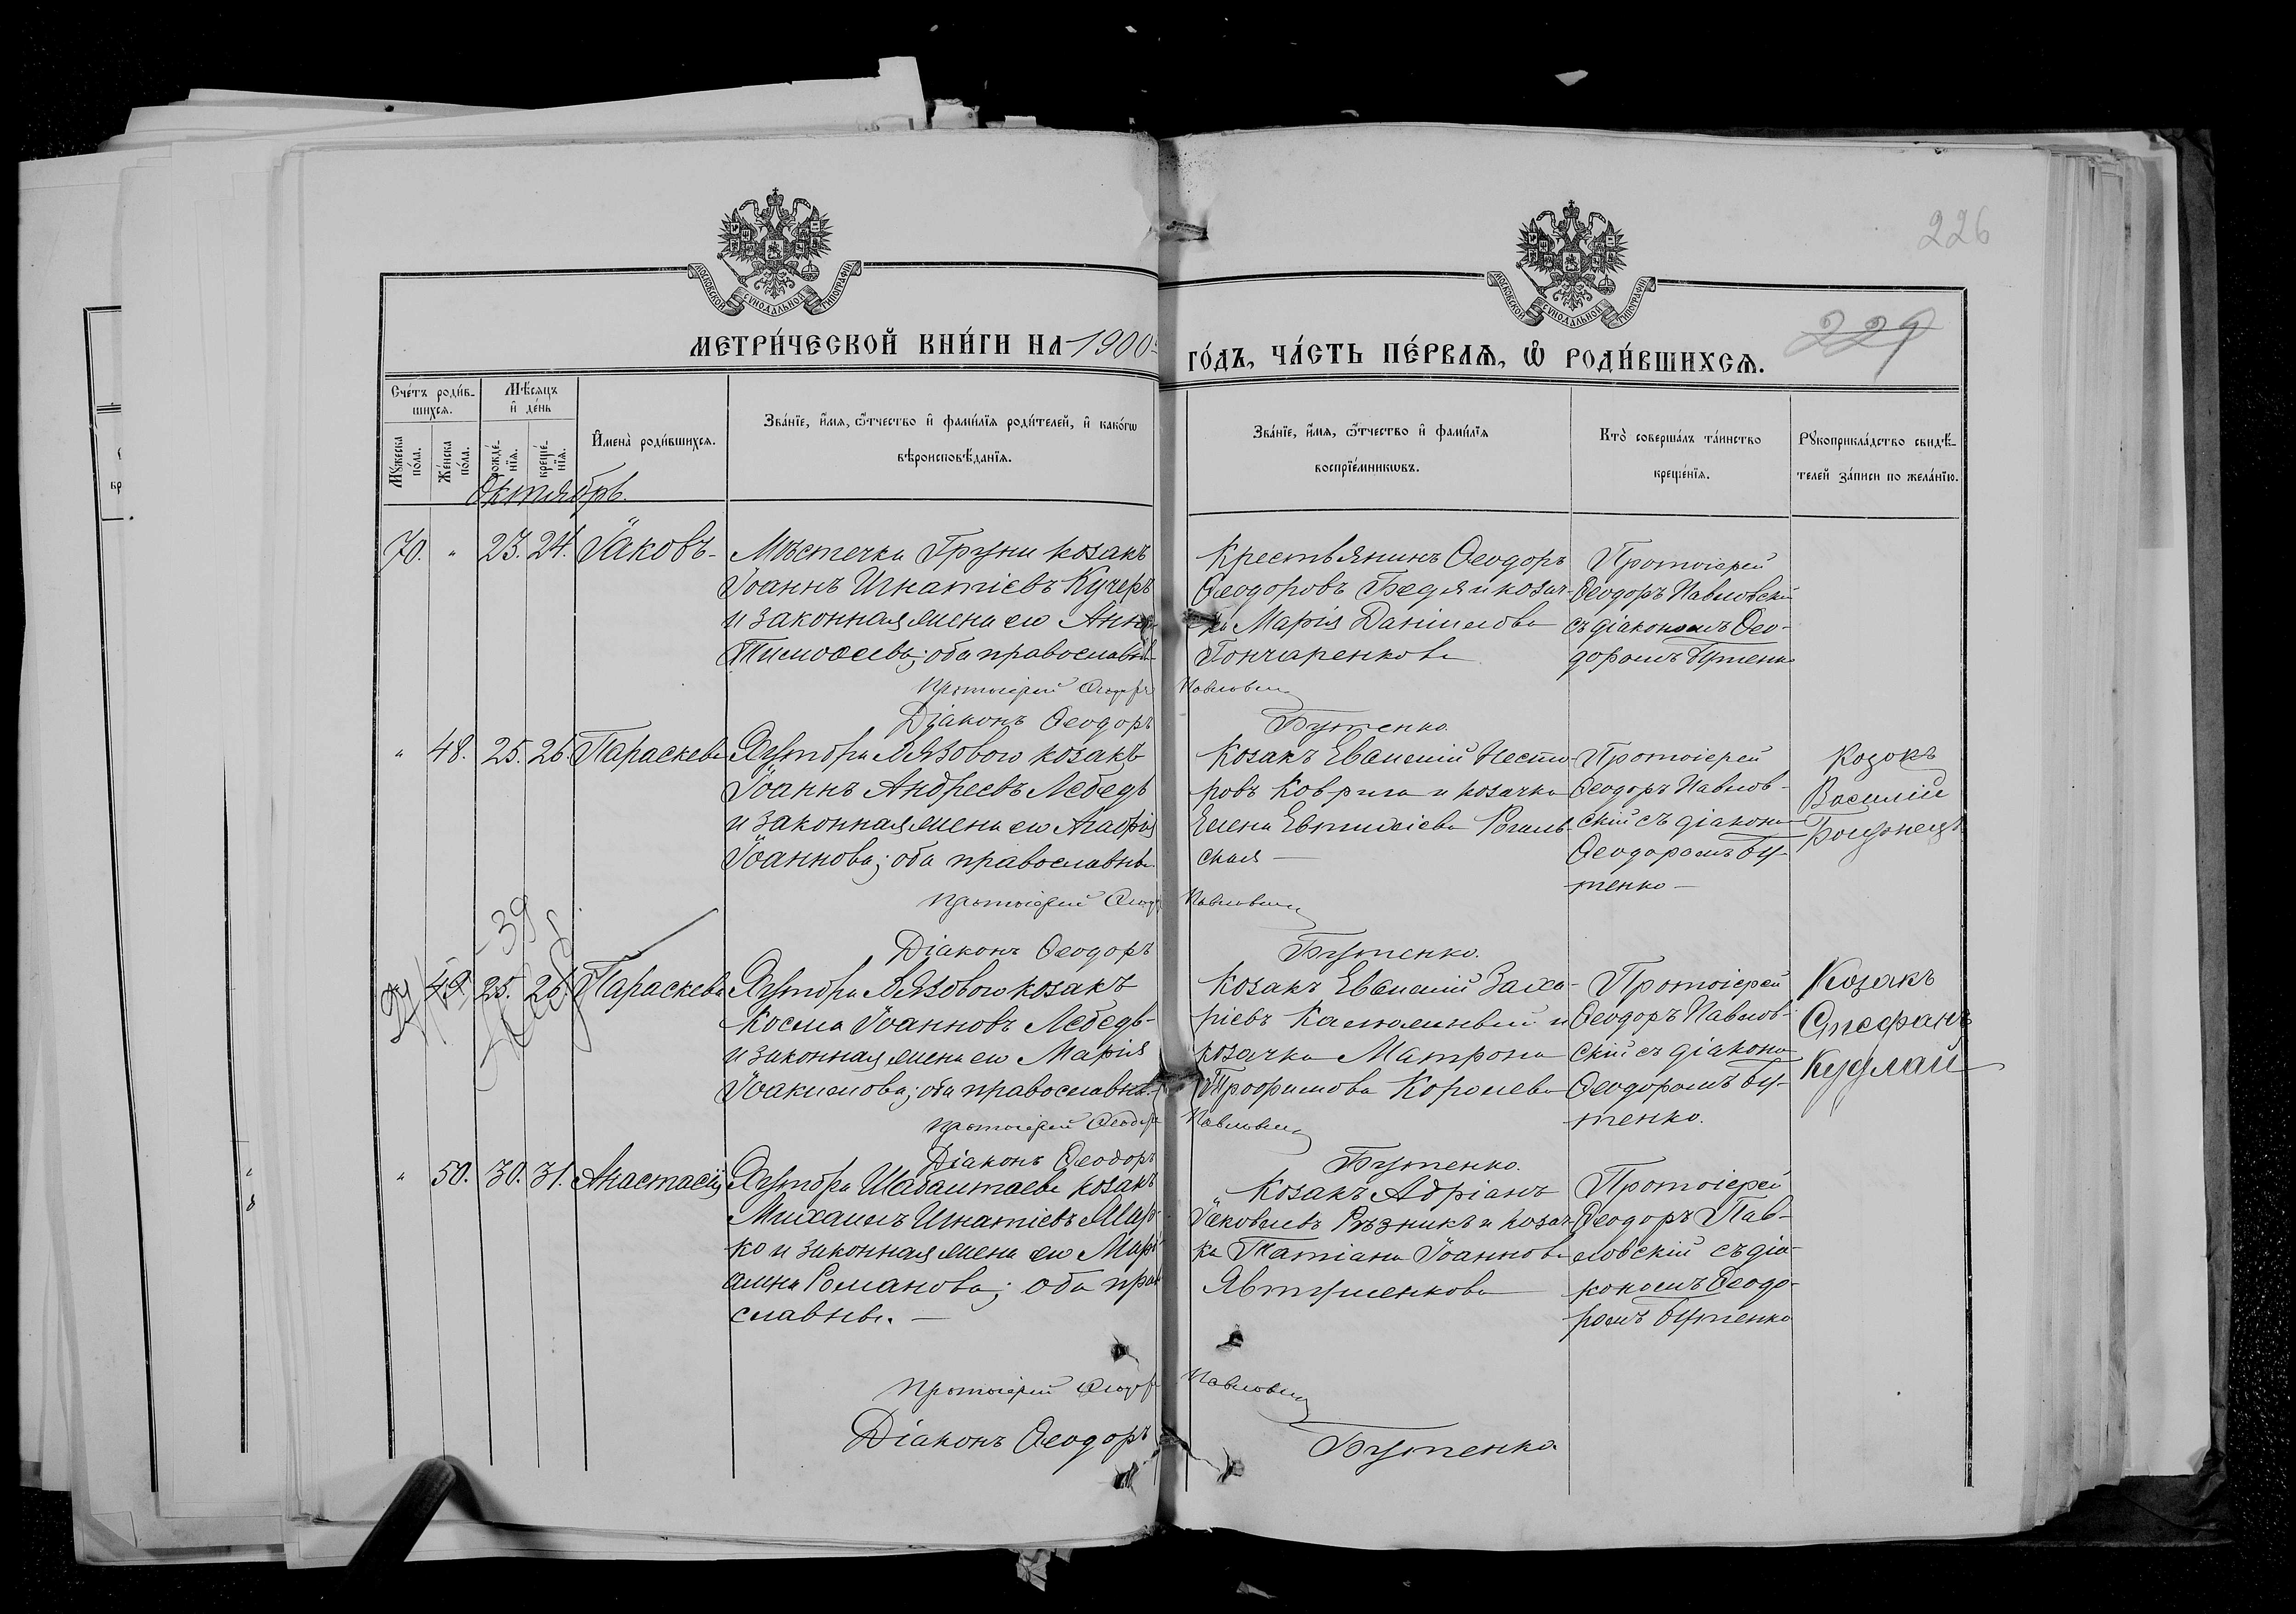 226
229
МОСКОВСКОЙ СѴНОДАЛЬНОЙ ТИПОГРАФІИ
МОСКОВСКОЙ СѴНОДАЛЬНОЙ ТИПОГРАФІИ
МЕТРИ́ЧЕСКОЙ КНИ́ГИ НА 1900
ГО́ДЪ, ЧА́СТЬ ПЕ́РВАѦ, Ѡ҆ РОДИ́ВШИХСѦ.
Сче́тъ роди́в-
шихсѧ.
Мꙋ́жеска по́ла.
Же́нска по́ла.
Мѣ́сѧцъ
и҆ де́нь
рожде́-нїѧ.
креще́-нїѧ.
И҆мена̀ роди́вшихсѧ.
Зва́нїе, и҆́мѧ, ѻ҆́тчество и҆ фами́лїѧ роди́телей, и҆ како́гѡ
вѣроисповѣ́данїѧ.
Зва́нїе, и҆́мѧ, ѻ҆́тчество и҆ фами́лїѧ
воспрїе́мникѡвъ.
Кто̀ соверша́лъ та́инство
креще́нїѧ.
Рꙋкоприкла́дство свидѣ́-
телей за́писи по жела́нїю.
Октябрь.
70. " 23. 24. Іаковъ-
Мѣстечка Груни козакъ
Іоаннъ Игнатіевъ Кучеръ
и законная жена его Анна
Тимоѳеева; оба православные
Крестьянинъ Ѳеодоръ
Ѳеодоровъ Бедя и козач-
ка Марія Даніилова
Гончаренкова
Протоіерей
Ѳеодоръ Павловскій
съ діакономъ Ѳео-
доромъ Бутенко
Протоіерей Ѳеодоръ Павловскій
Діаконъ Ѳеодоръ Бутенко.
" 48. 25. 26. Параскева
Хутора Вязового козакъ
Іоаннъ Андреевъ Лебедь
и законная жена его Агафія
Іоаннова; оба православные
Козакъ Евѳимій Несто-
ровъ Коврига и козачка
Елена Евтихіева
ская —
Протоіерей
Ѳеодоръ Павлов-
скій съ діакономъ
Ѳеодоромъ Бу-
тенко —
Козакъ
Василій
Протоіерей Ѳеодоръ Павловскій
Діаконъ Ѳеодоръ Бутенко.
39
49. 25. 26. Параскева
Хутора Вязового козакъ
Косма Іоанновъ Лебедь-
и законная жена его Марія
Іоакимова; оба православные.
Козакъ Евѳимій Заха-
ріевъ и
козачка Матрона
Трофимова Королева
Протоіерей
Ѳеодоръ Павлов-
скій съ діакономъ
Ѳеодоромъ Бу-
тенко.
Козакъ
Стефанъ
Кудлай
Протоіерей Ѳеодоръ Павловскій
Діаконъ Ѳеодоръ Бутенко.
" 50. 30. 31. Анастасія
Хутора Шабалтаева козакъ
Михаилъ Игнатіевъ Мар-
ко и законная жена его Мар-
Романова; оба право
славные. —
Козакъ Адріанъ
Іаковлевъ Рѣзникъ и козач-
ка Татіана Іоаннова
Явтушенкова
Протоіерей
Ѳеодоръ Пав-
ловскій съ діа-
кономъ Ѳеодо-
ромъ Бутенко
Протоіерей Ѳеодоръ Павловскій
Діаконъ Ѳеодоръ Бутенко